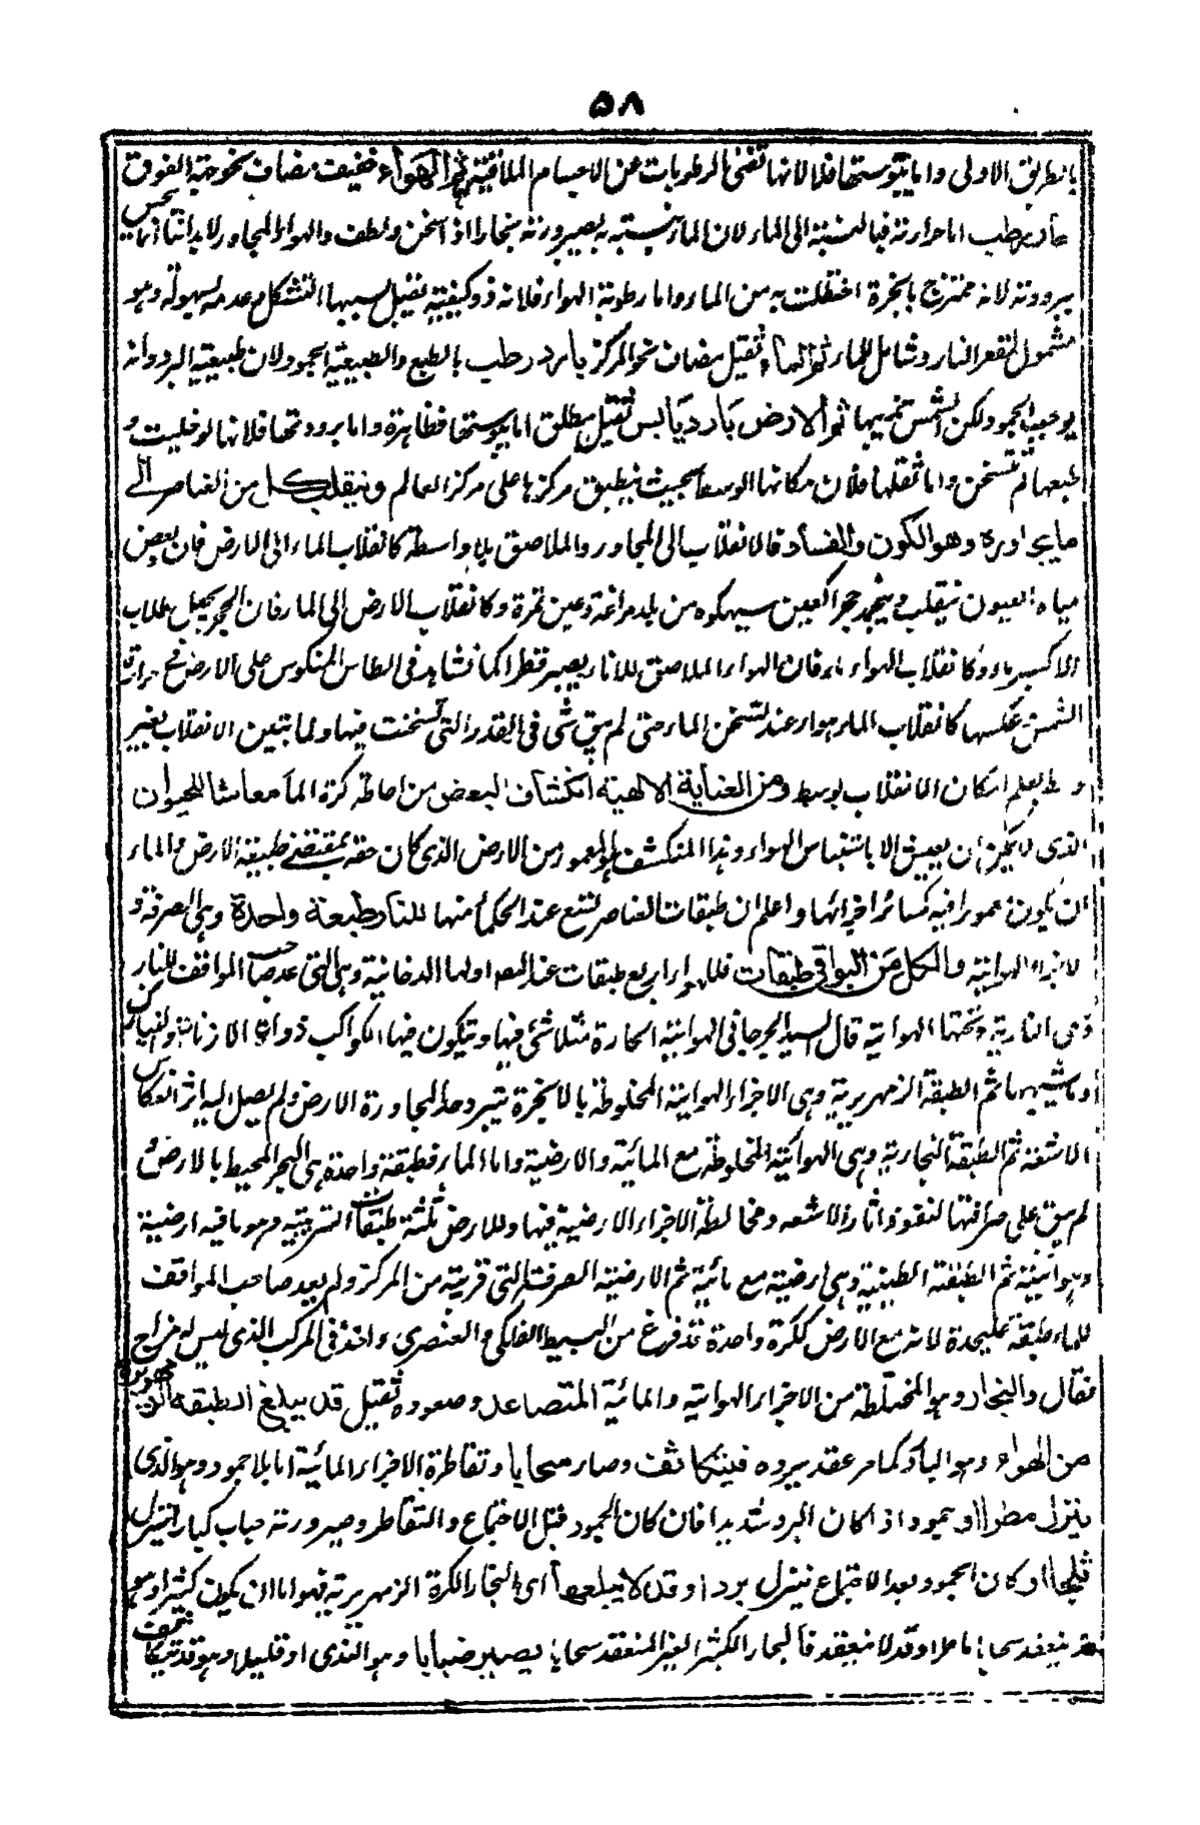 ٥٨
بالطريق الاولى واما يبوستها فلا لانها تفنى الرطوبات عن الاجسام الملاقية ثم الهواء خفيف مضاف نحو جهة الفوق
حار رطب اما حرارته فبالنسبة الى الماء لان الماء يتشبه به بصيرورته بخارا اذا سخن ولطف والهواء المجاور لابداننا انما يحس
ببرودته لانه ممتزج بابخرة اختلطت به من الماء واما رطوبة الهواء فلانه ذو كيفية يقبل بسببها التشكل وعدمه بسهولة وهو
مشمول لمقعر النار وشامل للماء ثم الماء ثقيل مضاف نحو المركز بارد رطب بالطبع والطبيعية الجمود لان طبيعية البرد وانه
يوجب الجمود ولكن الشمس تميهها ثم الارض بارد يابس ثقيل مطلق اما يبوستها فظاهرة واما برودتها فلانها لو خليت و
طبعها لم تتسخن واما ثقلها فلان مكانها الوسط بحيث ينطبق مركزها على مركز العالم وينقلب كل من العناصر الى
ما يجاوره وهو الكون والفساد فالانقلاب الى المجاور والملاصق بلا واسطة كانقلاب الماء الى الارض فان بعض
مياه العيون ينقلب وينجمد حجرا كعين سيهكوه من بلد مراغة وعين تمرة وكانقلاب الارض الى الماء فان الحجر يجعل طلاب
الاكسير ماء وكانقلاب الهواء ماء فان الهواء الملاصق للاناء يصير قطرا كما نشاهد فى الطاس المنكوس على الارض
الشمس عكسها كانقلاب الماء هواء عند تسخن الماء حتى لم يبق شئ فى القدر التى تسخنت فيها ولما تبين الانقلاب بغير
وسط يعلم امكان الانقلاب بوسط ومن العناية الالهية انكشاف البعض من احاطة كرة الماء معاشا للحيوان
الذى لا يمكن ان يعيش الا باستنشاق الهواء وهذا المنكشف هو المعمور من الارض الذى كان حقه بمقتضى طبيعة الارض والماء
ان يكون مغمورا فيه كسائر اجزائها واعلم ان طبقات العناصر تسع عند الحكماء منها للنار طبقة واحدة وهى الصرفة و
الاجزاء الهوائية والكل من البواقى طبقات فللهواء اربع طبقات عند المص اولها الدخانية وهى التى عدها صاحب المواقف للنار
وهى النارية وتحتها الهوائية قال السيد الجرجانى الهوائية الحارة تتلاشى فيها ويتكون فيها الكواكب ذوات الاذناب والنيازك
او ما يشبهها ثم الطبقة الزمهريرية وهى الاجزاء الهوائية المخلوطة بالابخرة تتبرد هذا لمجاورة الارض ولم يصل اليه اثر انعكاس
الاشعة ثم الطبقة البخارية وهى الهوائية المخلوطة مع المائية والارضية واما الماء فطبقة واحدة هى البحر المحيط بالارض و
لم يبق على صرافتها لنفوذ اثار الاشعه ومخالطة الاجزاء الارضية فيها وللارض ثلثة طبقات التربية وهو ما فيه ارضية
وهوائية ثم الطبقة الطينية وهى ارضية مع مائية ثم الارضية الصرفة التى قريبة من المركز ولم يعد صاحب المواقف
للماء طبقة عليحدة لانه مع الارض ككرة واحدة قد فرغ من البسيط الفلكى والعنصرى واخذ فى المركب الذى ليس له مزاج
فقال والبخار وهو المختلطة من الاجزاء الهوائية والمائية المتصاعد وصعوده ثقيل قد يبلغ الطبقة الزمهريرية
من الهواء وهو البارد كما مر عقد ببرده فيتكاثف وصار سحابا وتقاطرة الاجزاء المائية اما بلا جمود وهو الذى
ينزل مطرا او جمود اذا كان البرد شديدا فان كان الجمود قبل الاجتماع والتقاطر وصيرورته حباب كبار ينزل
ثلجا او كان الجمود بعد الاجتماع ينزل بردا وقد لا يبلغها اى البخار الكرة الزمهريرية فهو اما ان يكون كثيرا وهو
قد ينعقد سحابا ماطرا وقد لا ينعقد فالبخار الكثير الغير المنعقد سحابا يصير ضبابا وهو الندى او قليلا وهو قد يتكاثف